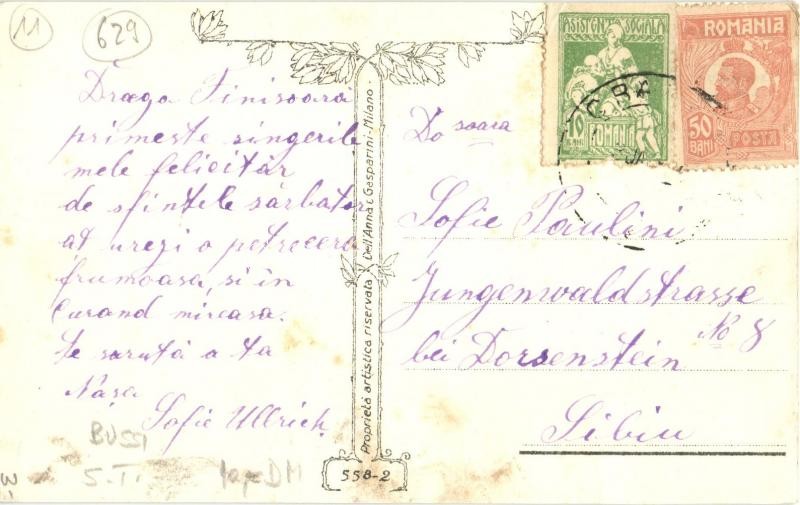 11
629
Draga Finisoara
primeste singerile
mele felicităr
de sfintele sărbator
at urezi o petrecere
frumoasa, si in
curand mireasa.
te sarută a ta
Nasa
Sofie Ullrich.
BUSSI
Proprietà artistica riservata Dell'Anna & Gasparini-Milano
558-2
ASISTENTA SOCIALA
10
BANI
ROMANIA
ROMANIA
50
BANI
POSTA
Do soara
Sofie Paulini
Jungenwaldstrasse
No 8
bei Dorsenstein
Sibiu